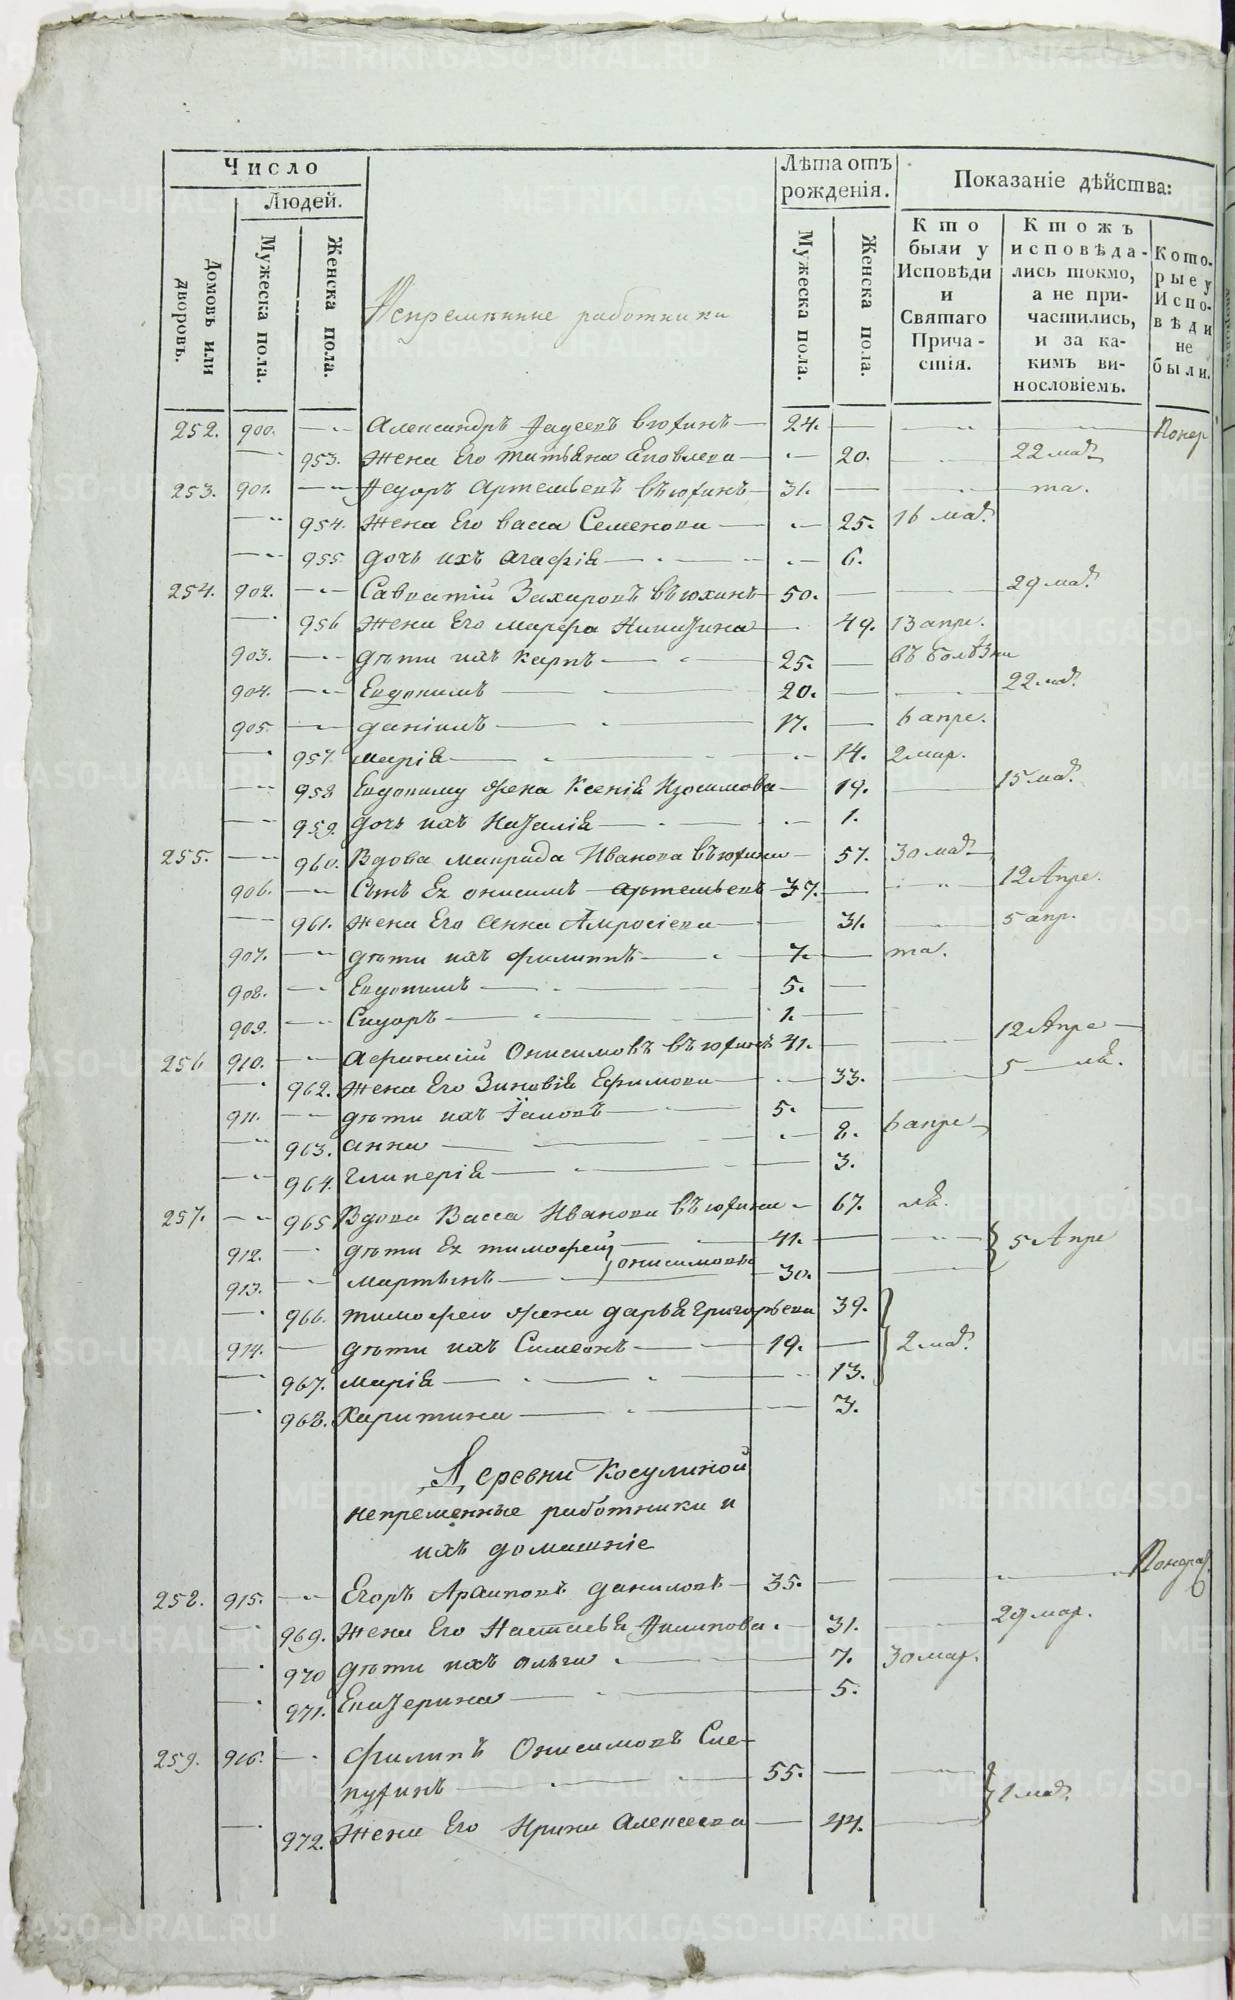 Число
Людей.
Домовъ или дворовъ.
Мужеска пола.
Женска пола.
Непременние работники
Лѣта отъ рожденія.
Мужеска пола.
Женска пола.
Показаніе дѣйства:
Кто были у Исповѣди и Святаго Причастія.
Ктожъ исповѣдались токмо, а не причастились, и за какимъ винословіемъ.
Которые у Исповѣди не были.
252. 900. Александръ Фадеевъ Вюхинъ 24.
953. Жена Его татьяна Яковлева 20. 22 мая
253. 901. Федоръ Артемьевъ Въюхинъ 31. та.
954. Жена Его васса Семенова 25. 16 мая.
955. дочь ихъ агафія 6.
254. 902. Савватій Захаровъ Въюхинъ 50. 29 мая.
956 Жена Его марфа Никитина 49. 13 апре.
903. дѣти ихъ карпъ 25. въ болѣзни
904. Евдокимъ 20. 22 мая.
905. даніилъ 17. 6 апре.
957. марія 14. 2 мар.
958 Евдокиму жена Ксенія Изосимова 19. 15 мая.
959. дочь ихъ Наталія 1.
255. 960. Вдова маврида Иванова Въюхина 57. 30 мая
906. Сынъ Ея онисимъ артемьевъ 37. 12 Апре.
961. Жена Его анна Амросіева 31. 5 апр.
907. дѣти ихъ филиппъ 7. та.
908. Евдокимъ 5.
909. Сидоръ 1.
256 910. афанасій Онисимовъ въюхинъ 41. 12 Апре
962. Жена Его Зиновія Ефимова 33. 5
911. дѣти ихъ Іаковъ 5.
963. анна 8. 6 апре
964. гликерія 3.
257. 965 Вдова Васса Иванова въюхина 67.
912. дѣти Ея тимофей 41. 5 Апре
913. мартынъ онисимовы 30.
966. тимофею жена дарья григорьева 39.
914. дѣти ихъ Симеонъ 19. 2 мая.
967. марія 13.
968. Харитина 3.
Деревни Косулиной
непременные работники и
ихъ домашніе
258. 915. Егоръ Архиповъ даниловъ 35.
969. Жена Его Настасья Филипова 31. 29 мар.
970 дѣти ихъ ольга 7. 30 мар.
971. Екатерина 5.
259. 916. Филипъ Онисимовъ Сле-
пухинъ 55. 1 мая.
972. Жена Его Ирина Алексеева 44.
METRIKI.GASO-URAL.RU